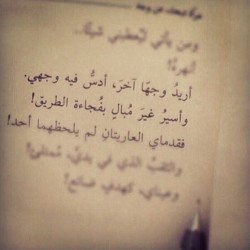 امرأة تبحث عن وجه
ومن يأتي ليُعطيني شيئًا..
أنهرهُ!
أريدُ وجهًا آخرَ، أدسُّ فيه وجهي.
وأسيرُ غيرَ مُبالٍ بفُجاءة الطريق!
فقدماي العاريتانِ لم يلحظهما أحد!
والثقبُ الذي في يدي، مُمتلئ!
وعيناي، كهدفٍ ضائع!